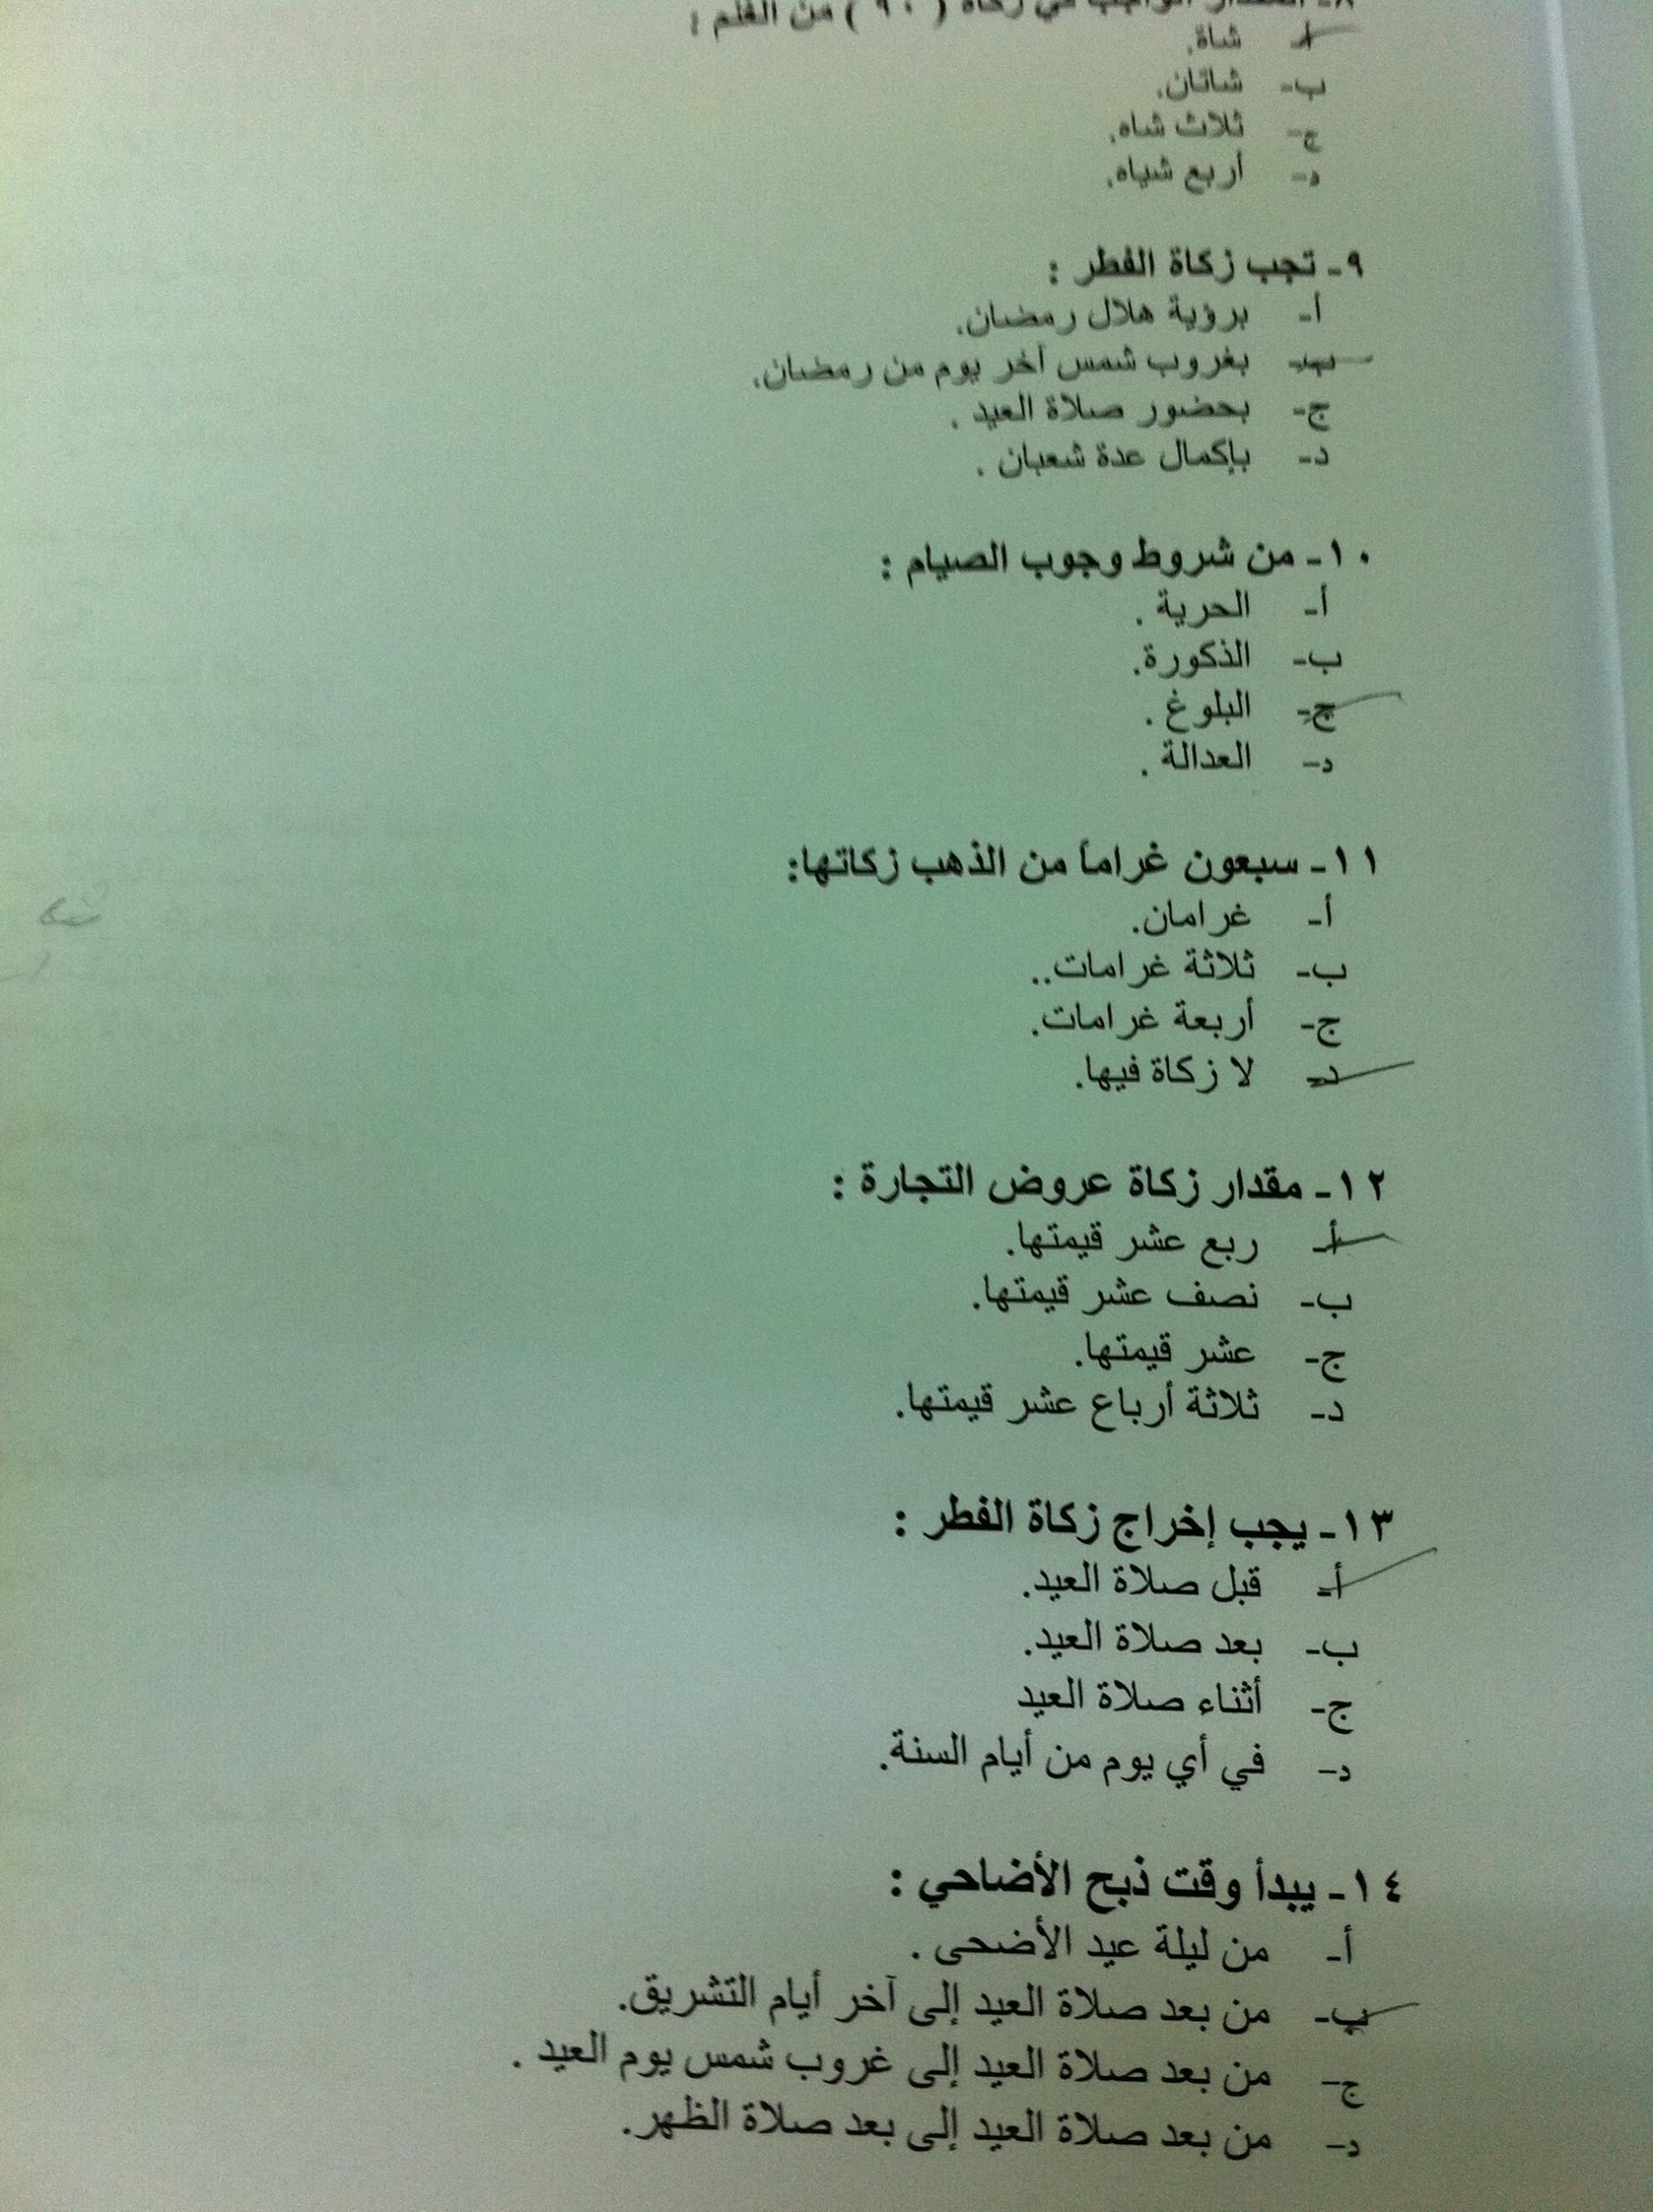 ٨- المقدار الواجب في زكاة ( ٩٠ ) من الغنم :
أ- شاة.
ب- شاتان.
ج- ثلاث شياه.
د- أربع شياه.
٩- تجب زكاة الفطر :
أ- برؤية هلال رمضان.
ب- بغروب شمس آخر يوم من رمضان.
ج- بحضور صلاة العيد .
د- بإكمال عدة شعبان .
١٠- من شروط وجوب الصيام :
أ- الحرية .
ب- الذكورة.
ج- البلوغ .
د- العدالة .
١١- سبعون غراماً من الذهب زكاتها:
أ- غرامان.
ب- ثلاثة غرامات..
ج- أربعة غرامات.
د- لا زكاة فيها.
١٢- مقدار زكاة عروض التجارة :
أ- ربع عشر قيمتها.
ب- نصف عشر قيمتها.
ج- عشر قيمتها.
د- ثلاثة أرباع عشر قيمتها.
١٣- يجب إخراج زكاة الفطر :
أ- قبل صلاة العيد.
ب- بعد صلاة العيد.
ج- أثناء صلاة العيد
د- في أي يوم من أيام السنة.
١٤- يبدأ وقت ذبح الأضاحي :
أ- من ليلة عيد الأضحى .
ب- من بعد صلاة العيد إلى آخر أيام التشريق.
ج- من بعد صلاة العيد إلى غروب شمس يوم العيد .
د- من بعد صلاة العيد إلى بعد صلاة الظهر.